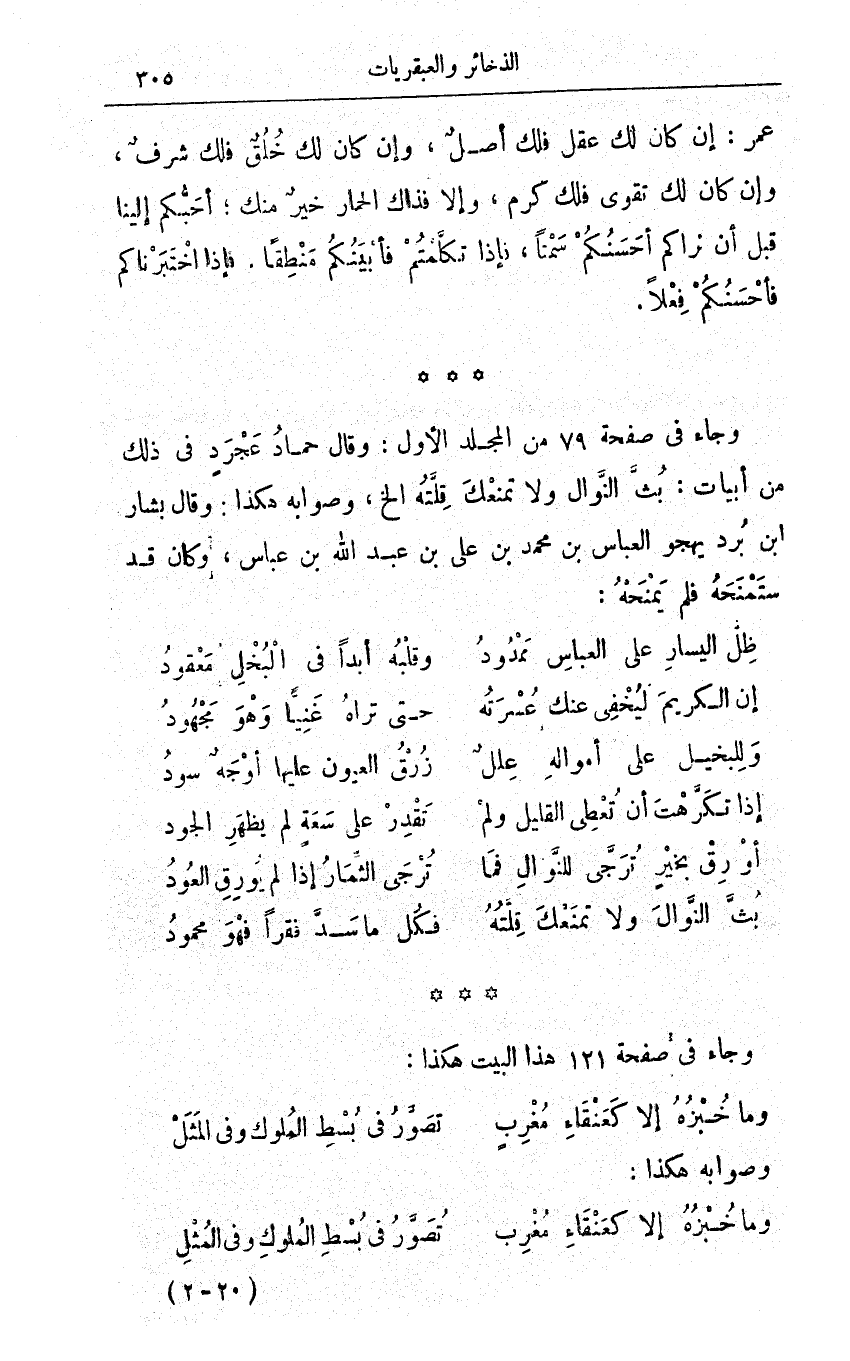 الذخائر والعبقريات ٣٠٥
عمر : إن كان لك عقل فلك أصـلٌ ، وإن كان لك خُلُقٌ فلك شرفٌ ،
وإن كان لك تقوى فلك كرم ، وإلا فذاك الحمار خيرٌ منك ؛ أحَبُّكم إلينا
قبل أن نراكم أحَسَنُكُمْ سَمْتاً ، فإذا تكلَّمْتُمْ فأبْيَنُكُمْ مَنْطِقًا . فإذا اخْتَبَرْناكم
فأحْسَنُكُمْ فِعْلاً .
* * *
وجاء فى صفحة ٧٩ من المجـلد الأول : وقال حمـادُ عَجْرَدٍ فى ذلك
من أبيات : بُثَّ النَّوال ولا تمنعْكَ قِلَّتُه الخ ، وصوابه هكذا : وقال بشار
ابن بُرد يهجو العباس بن محمد بن على بن عبـد الله بن عباس ، وكان قـد
ستَمْنَحَهُ فلم يَمْنَحْهُ :
ظِلُّ اليسارِ على العباسِ مَمْدُودُ وقلْبُه أبداً فى الْبُخْلِ مَعْقودُ
إن الـكريمَ لَيُخْفِى عنك عُسْرَتَه حـتى تراهُ غَنِيًّا وَهْوَ مَجْهُودُ
وَلِلبخيـل على أموالهِ عِللٌ زُرْقُ العيون عليها أوْجَهٌ سودُ
إذا تـكَرَّهْتَ أن تُعْطِى القليل ولمْ تَقْدِرْ على سَعَةٍ لم يظهَرِ الجود
أوْرِقْ بخيْرٍ تُرَجَّى للنَّوالِ فمَا تُرْجَى الثَّمَارُ إذا لم يُورِقِ العُودُ
بُثَّ النَّوالَ ولا تمنَعْكَ قِلَّتُهُ فـكُل ماسَـدَّ فقراً فهْوَ محمودُ
* * *
وجاء فى صفحة ١٢١ هذا البيت هكذا :
وما خُبْزُهُ إلا كَعَنْقَاءِ مُغْرِبٍ تصَوَّرُ فى بُسْطِ المُلوك وفى المَثَلْ
وصوابه هكذا :
وما خُبْزُهُ إلا كعَنْقَاءِ مُغْرِب تُصَوَّرُ فى بُسْطِ المُلوكِ وفى المُثْلِ
(٢٠-٢)